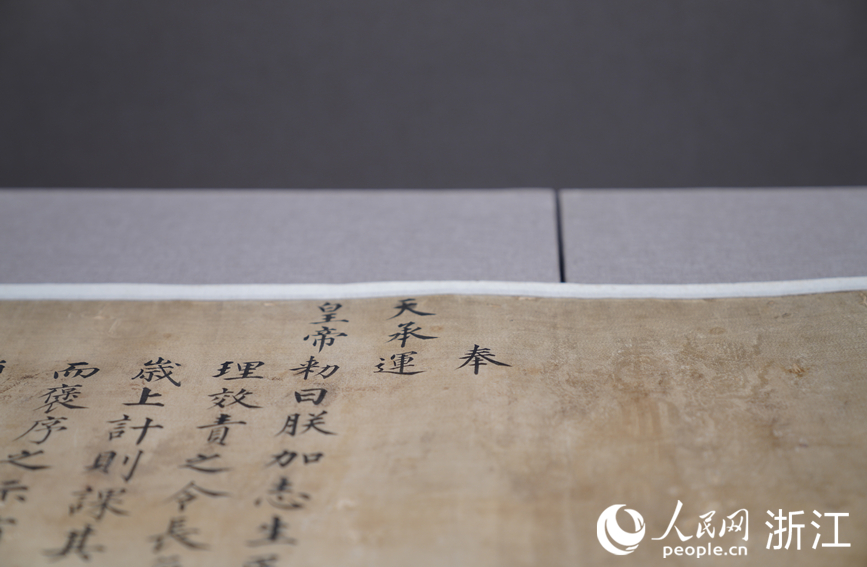 奉
天承運
皇帝勅曰朕加志生
理效責之令長
歲上計則課其
而褒序之示
人民网 浙江
people.cn